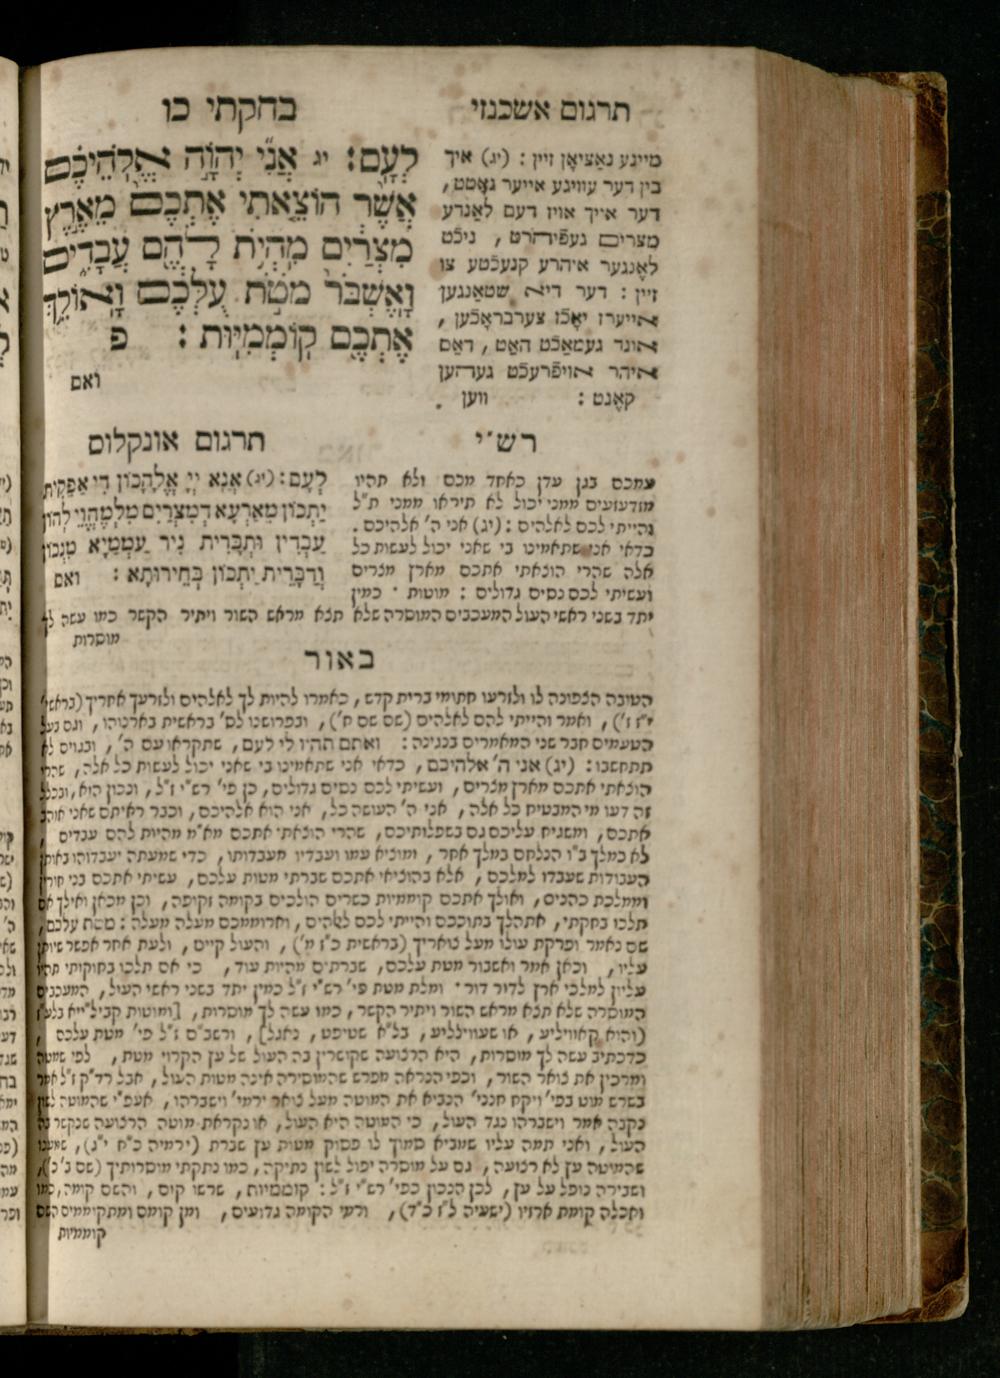 בחקתי כו
תרגום אשכנזי
לְעָם: יג אֲנִי יְהֹוָה אֱלֹהֵיכֶם
אֲשֶׁר הוֹצֵאתִי אֶתְכֶם מֵאֶרֶץ
מִצְרַיִם מִהְיֹת לָהֶם עֲבָדִים
וָאֶשְׁבֹּר מֹטֹת עֻלְּכֶם וָאוֹלֵךְ
אֶתְכֶם קוֹמְמִיּוּת: פ
ואם
מיינע נאַציאָן זיין: (יג) איך
בין דער עוויגע אייער גאָטט,
דער אייך אויז דעם לאַנדע
מצרים געפֿיהרט, ניכט
לאֶנגער איהרע קנעכֿטע צו
זיין: דער דיא שטאַנגען
אייערז יאָכֿז צערבראָכֿען,
אונד געמאַכֿט האַט, דאַס
איהר אויפֿרעכֿט געהען
קאֶנט: ווען
תרגום אונקלוס
לְעָם: (יג) אֲנָא יְיָ אֱלָהֲכוֹן דִי אַפֵּקִית
יַתְכוֹן מֵאַרְעָא דְמִצְרַיִם מִלְּמֶהֱוֵי לְהוֹן
עַבְדִין וּתְבָרִית נִיר עַמְמַיָא מִנְּכוֹן
וְדַבָּרִית יַתְכוֹן בְּחֵירוּתָא: ואם
רש"י
עמכם בגן עדן כאחד מכם ולא תהיו
מזדעזעים ממני יכול לא תיראו ממני ת"ל
והייתי לכם לאלהים: (יג) אני ה' אלהיכם.
כדאי אני שתאמינו בי שאני יכול לעשות כל
אלה שהרי הוצאתי אתכם מארץ מצרים
ועשיתי לכם נסים גדולים: מוטות. כמין
יתד בשני ראשי העול המעכבים המוסרה שלא תצא מראש השור ויתיר הקשר כמו עשה לך
מוסרות
באור
הטובה הצפונה לו ולזרעו חתומי ברית קדש, כאמרו להיות לך לאלהים ולזרעך אחריך (בראשי'
י"ז ז'), ואמר והייתי להם לאלהים (שם שם ח'), ובפרושנו לס' בראשית בארנוהו, וגם בעל
הטעמים חבר שני המאמרים בנגינה: ואתם תהיו לי לעם, שתקראו עם ה', ובגוים לא
תתחשבו: (יג) אני ה' אלהיכם, כדאי אני שתאמינו בי שאני יכול לעשות כל אלה, שהרי
הוצאתי אתכם מארץ מצרים, ועשיתי לכם נסים גדולים, כן פי' רש"י ז"ל, ונכון הוא, ובכלל
זה דעו מי המבטיח כל אלה, אני ה' העושה כל, אני הוא אלהיכם, וכבר ראיתם שאני אוהב
אתכם, ומשגיח עליכם גם בשפלותיכם, שהרי הוצאתי אתכם מא"מ מהיות להם עבדים,
לא כמלך ב"ו הנלחם במלך אחר, ומוציא עמו ועבדיו מעבדותו, כדי שמעתה יעבדוהו באותן
העבודות שעבדו למלכם, אלא בהוציאי אתכם שברתי מטות עלכם, עשיתי אתכם בני חורין
וממלכת כהנים, ואולך אתכם קוממיות כשרים הולכים בקומה זקופה, וכן מכאן ואילך אם
תלכו בחקתי, אתהלך בתוככם והייתי לכם לאלהים, וארוממכם מעלה מעלה: מטת עלכם,
שם נאמר ופרקת עולו מעל צואריך (בראשית כ"ז מ'), והעול קיים, ולעת אחר אפשר שיותן
עליו, וכאן אמר ואשבור מטת עלכם, שברתים מהיות עוד, כי אם תלכו בחוקותי תהיו
עליון למלכי ארץ לדור דור. ומלת מטת פי' רש"י ז"ל כמין יתד בשני ראשי העול, המעכבים
המוסרה שלא תצא מראש השור ויתיר הקשר, כמו עשה לך מוסרות, [ומוטות קביל"ייא בלע"ז
(והוא קאוויליע, או שעוויליע, בל"א שטיפט, נאגל], ורשב"ם ז"ל פי' מטת עלכם,
כדכתיב עשה לך מוסרות, היא הרצועה שקושרין בה העול של עץ הקרוי מטת, לפי שמטה
ומרכין את צואר השור, וכפי הנראה מפרש שהמוסירה אינה מטות העול, אבל רד"ק ז"ל אמר
בשרש מוט בפי' ויקח חנני' הנביא את המוטה מעל צואר ירמי' וישברהו, אעפ"י שהמוטה לשון
נקבה אמר וישברהו נגד העול, כי המוטה היא העול, או נקראת מוטה הרצועה שנקשר בה
העול, ואני תמה עליו שמביא סמוך לו פסוק מטות עץ שברת (ירמיה כ"ח י"ג), שמענו
שהמוטה עץ לא רצועה, גם על מוסרה יפול לשון נתיקה, כמו נתקתי מוסרותיך (שם ב' כ'),
ושבירה נופל על עץ, לכן הנכון כפי' רש"י ז"ל: קוממיות, שרשו קום, והשם קומה, כמו
ואכלה קומת ארזיו (ישעיה ל"ז כ"ד), ורמי הקומה גדועים, ומן קומם ומתקוממים השם
קוממיות